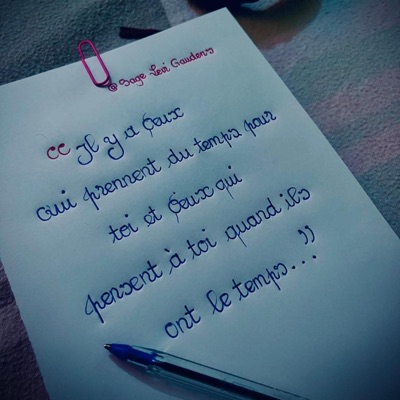 © Sage Levi Gaudens
“ Il y a Ceux
qui prennent du temps pour
toi et Ceux qui
pensent à toi quand ils
ont le temps... ”